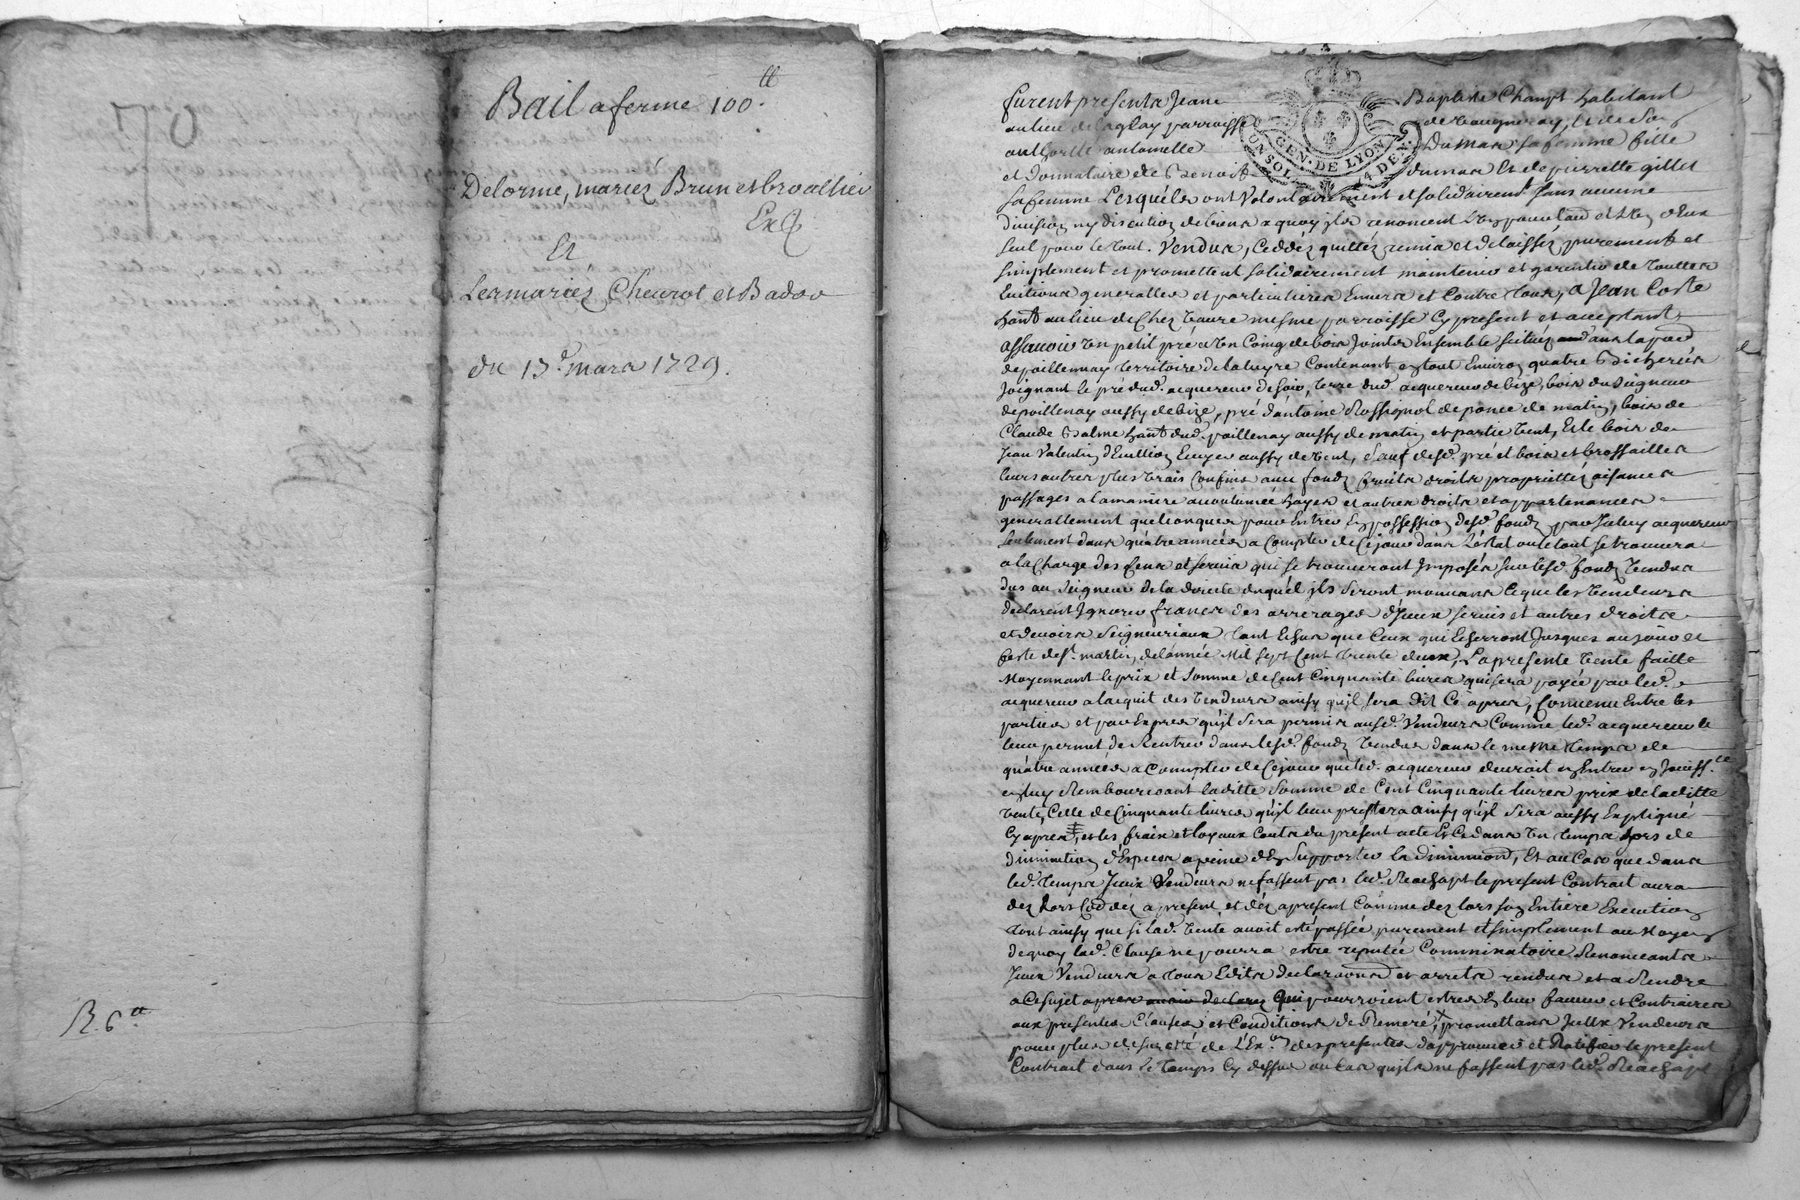 70
Bail a ferme 100.tt
Delorme, mariez Brun et brossier
Et
Les mariez Cheurot et Badou
du 13e mars 1729.
R. 6tt
furent presents Jean Baptiste habitant
au lieu de parroisse de Vaugneray, et de son
authorité antoinette Dumas sa femme fille
et donnataire de Benoist dumas et de pierrette gillet
sa femme Lesquels ont Volontairement et solidairement sans aucune
division ny discution de biens a quoy ils renoncent
seul pour le tout. Vendus, Ceddéz quittéz remis et delaisséz purement et
simplement et promettent solidairement maintenir et garentir de touttes
Evitions generalles et particulieres Envers et Contre tous, a Jean Coste
hant au lieu de Chez mesme parroisse Cy present et acceptant
assavoir Un petit pré et Un Coing de bois Joints Ensemble scituéz
territoire de Contenant en tout Environ quatre Bicherées
Joignant le pré dud. acquereur de soir, terre dud. acquereur de bize, bois du Seigneur
de poillenay aussy de bize, pré d'antoine Rossignol de ponce de matin, bois de
Claude Balme hant dud. poillenay aussy de matin et partie Vent, Et le bois de
Jean Valentin aussy de Vent, sauf desd. pré et bois et brossailles
leurs autres plus Vrais Confins avec fondz fruits droits proprietéz aisances
passages a la maniere accoutumée hayes et autres droits et appartenances
generallement quelconques pour Entrer En possession desd. fondz par Iceluy acquereur
seulement dans quatre années a Compter de Cejour dans L'état ou le tout se trouvera
a la Charge des Cens et servis qui se trouveront Imposés sur lesd. fondz Vendus
dus au Seigneur de la directe duquel ils seront mouvans lequel les Vendeurs
declarent Ignorer francs des arrerages d'Iceux servis et autres droits
et devoirs Seigneuriaux tant Echus que Ceux qui Echerront Jusques au jour et
feste de St. martin de l'année Mil sept Cent trente deux, La presente Vente faitte
Moyennant le prix et somme de Cent Cinquante livres qui sera payée par led.
acquereur a l'acquit des Vendeurs ainsy qu'il sera dit Cy apres, Convenu Entre les
parties et par Expres qu'il sera permis ausd. Vendeurs Comme led. acquereur le
leur permet de Rentrer dans lesd. fondz Vendus dans le meme temps de
quatre années a Compter de Cejour que led. acquereur devroit en Entrer en Jouiss.ce
en luy Remboursant laditte somme de Cent Cinquante livres prix de laditte
Vente, Celle de Cinquante livres qu'il leur prestera ainsy qu'il sera aussy Expliqué
Cy apres, et les fraix et loyaux Couts du present acte Et Ce dans Un temps hors de
diminution d'Especes a peine d'En Supporter la diminuon, Et au Cas que dans
led. temps Iceux Vendeurs ne fassent pas led. Reachapt le present Contrat aura
des lors Comme des a present, et dez apresent Comme dez lors son Entiere Execution
tout ainsy que si lad. Vente avoit esté passée purement et simplement au Moyen
de quoy lad. Clause ne pourra estre reputée Comminatoire Renonceants
Iceux Vendeurs a tous Edits declaraons et arrets rendus et a Rendre
a Ce sujet apres qui pourroient estres En leur faveur et Contraires
aux presentes Clauses et Conditions de Remeré, promettans Iceux Vendeurs
pour plus de sureté de L'Ex.on des presentes d'approuver et Ratifier le present
Contrait dans le temps Cy dessus au Cas qu'ils ne fassent pas led. Reachapt
GEN. DE LYON